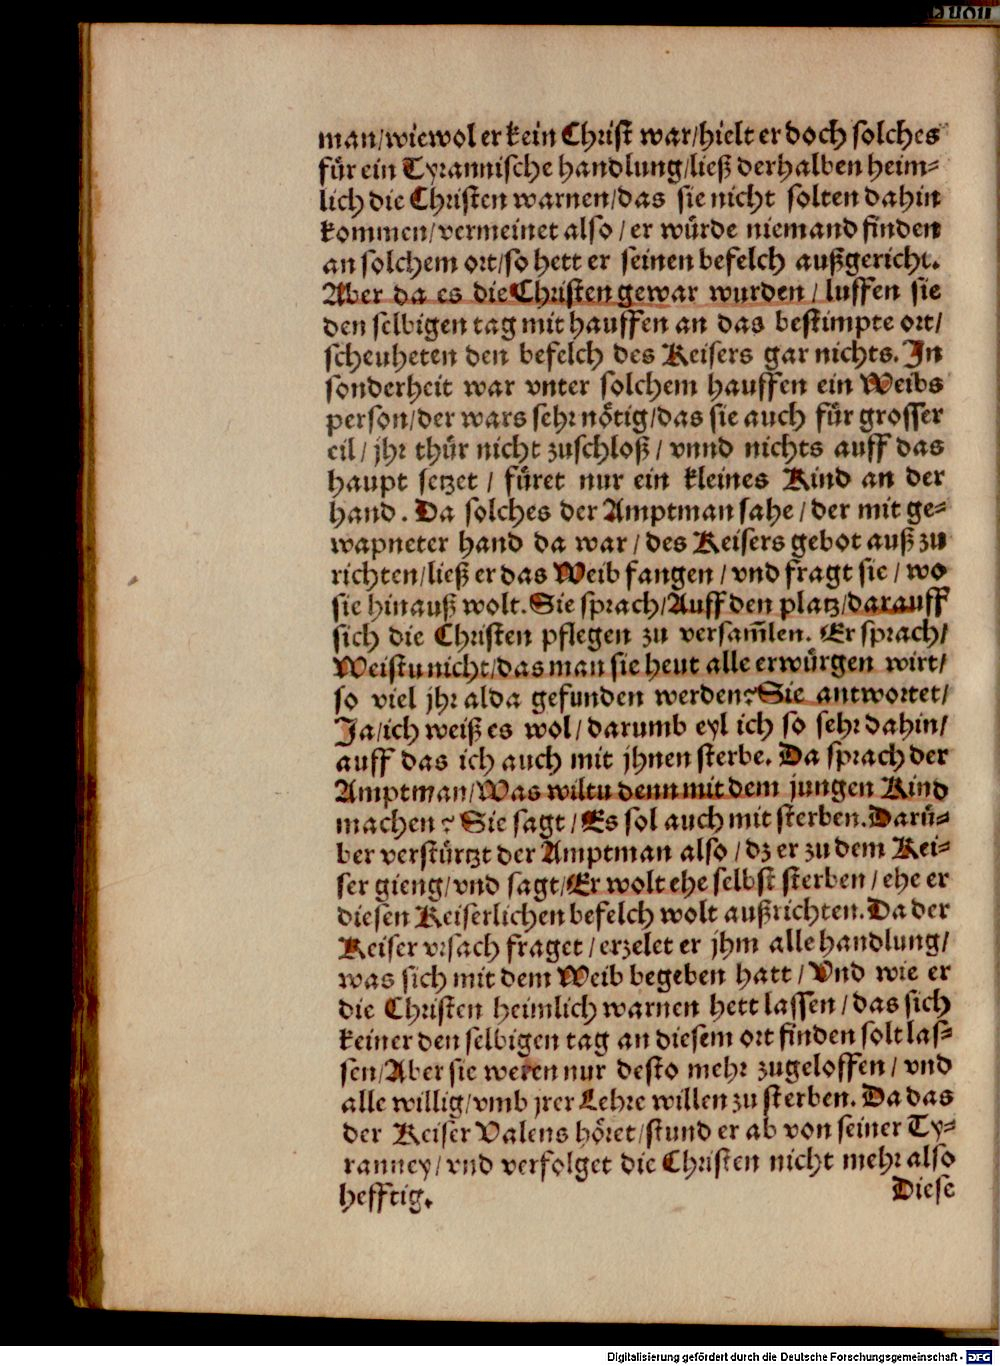 man/wiewol er kein Christ war/hielt er doch solches
für ein Tyrannische handlung/ließ derhalben heim⸗
lich die Christen warnen/das sie nicht solten dahin
kommen/vermeinet also/er würde niemand finden
an solchem ort/so hett er seinen befelch außgericht.
Aber da es die Christen gewar wurden/luffen sie
den selbigen tag mit hauffen an das bestimpte ort/
scheuheten den befelch des Keisers gar nichts. In
sonderheit war vnter solchem hauffen ein Weibs
person/der wars sehr nötig/das sie auch für grosser
eil/jhr thür nicht zuschloß/vnnd nichts auff das
haupt setzet/füret nur ein kleines Kind an der
hand. Da solches der Amptman sahe/der mit ge⸗
wapneter hand da war/des Keisers gebot auß zu
richten/ließ er das Weib fangen/vnd fragt sie/wo
sie hinauß wolt. Sie sprach/Auff den platz/darauff
sich die Christen pflegen zu versam̃len. Er sprach/
Weistu nicht/das man sie heut alle erwürgen wirt/
so viel jhr alda gefunden werden? Sie antwortet/
Ja/ich weiß es wol/darumb eyl ich so sehr dahin/
auff das ich auch mit jhnen sterbe. Da sprach der
Amptman/Was wiltu denn mit dem jungen Kind
machen? Sie sagt/Es sol auch mit sterben. Darü⸗
ber verstürtzt der Amptman also/dz er zu dem Kei⸗
ser gieng/vnd sagt/Er wolt ehe selbst sterben/ehe er
diesen Keiserlichen befelch wolt außrichten. Da der
Keiser vrsach fraget/erzelet er jhm alle handlung/
was sich mit dem Weib begeben hatt/Vnd wie er
die Christen heimlich warnen hett lassen/das sich
keiner den selbigen tag an diesem ort finden solt las⸗
sen/Aber sie weren nur desto mehr zugeloffen/vnd
alle willig/vmb jrer Lehre willen zu sterben. Da das
der Keiser Valens höret/stund er ab von seiner Ty⸗
ranney/vnd verfolget die Christen nicht mehr also
hefftig.
Diese
Digitalisierung gefördert durch die Deutsche Forschungsgemeinschaft - DFG